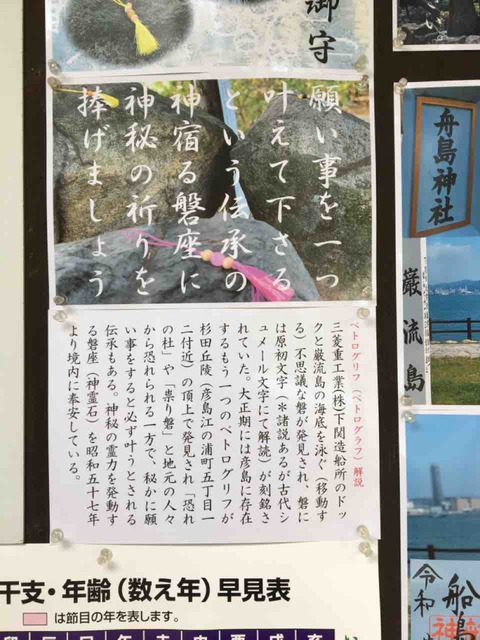 御守
願い事を一つ
叶えて下さる
という伝承の
神宿る磐座に
神秘の祈りを
捧げましょう
ペトログリフ（ペトログラフ）解説
三菱重工業(株)下関造船所のドッ
クと巌流島の海底を泳ぐ（移動す
る）不思議な磐が発見され、磐に
は原初文字（＊諸説あるが古代シ
ュメール文字にて解読）が刻銘さ
れていた。大正期には彦島に存在
するもう一つのペトログリフが
杉田丘陵（彦島江の浦町五丁目一
二付近）の頂上で発見され「恐れ
の杜」や「祟り磐」と地元の人々
から恐れられる一方で、秘かに願
い事をすると必ず叶うとされる
伝承もある。神秘の霊力を発動す
る磐座（神霊石）を昭和五十七年
より境内に奉安している。
舟島神社
巌流島
令和
船島
干支・年齢（数え年）早見表
は節目の年を表します。